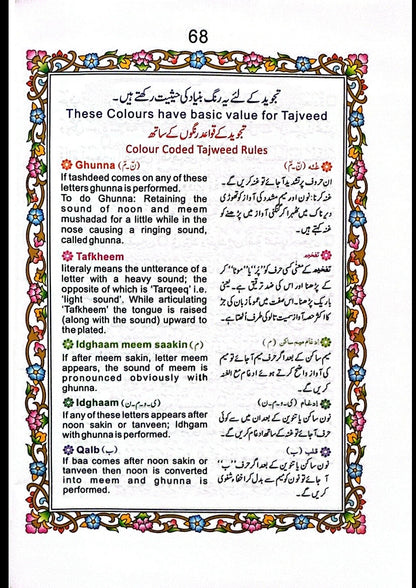 68
تجوید کے لئے یہ رنگ بنیاد کی حیثیت رکھتے ہیں۔
These Colours have basic value for Tajveed
تجوید کے قواعد رنگوں کے ساتھ
Colour Coded Tajweed Rules
Ghunna (نّ-مّ)
If tashdeed comes on any of these
letters ghunna is performed.
To do Ghunna: Retaining the
sound of noon and meem
mushadad for a little while in the
nose causing a ringing sound,
called ghunna.
غنّہ (نّ-مّ)
ان حروف پر تشدید آ جائے تو غنہ کریں گے۔
غنہ کرنا: نون اور میم مشدد کی آواز کو تھوڑی
دیر ناک میں ٹھہرا کر گنگنی آواز میں پڑھنے کو
غنہ کہتے ہیں۔
Tafkheem
literaly means the untterance of a
letter with a heavy sound; the
opposite of which is 'Tarqeeq' i.e.
'light sound'. While articulating
'Tafkheem' the tongue is raised
(along with the sound) upward to
the plated.
تفخیم
تفخیم کے معنی کسی حرف کو ”پُر“ یا ”موٹا“ کر
کے پڑھنا اور اس کی ضد ترقیق ہے۔ یعنی
باریک پڑھنا۔ اس صفت میں عموماً زبان کی جڑ
کا اکثر حصہ آواز سمیت تالو کی طرف اُٹھتا ہے۔
Idghaam meem saakin (م)
If after meem sakin, letter meem
appears, the sound of meem is
pronounced obviously with
ghunna.
ادغام میم ساکن (م)
میم ساکن کے بعد اگر حرف میم آ جائے تو میم
کی آواز واضح کرتے ہوئے ادغام مع الغنہ
کریں گے۔
Idghaam (ی-و-م-ن)
If any of these letters appears after
noon sakin or tanveen; Idhgam
with ghunna is performed.
ادغام (ی-و-م-ن)
نون ساکن یا تنوین کے بعد ان میں سے کوئی
حرف آ جائے تو غنہ کے ساتھ ادغام کریں گے۔
Qalb (ب)
If baa comes after noon sakin or
tanveen then noon is converted
into meem and ghunna is
performed.
قلب (ب)
نون ساکن یا تنوین کے بعد اگر حرف ”ب“
آ جائے تو نون کو میم سے بدل کر اخفاء شفوی
کریں گے۔